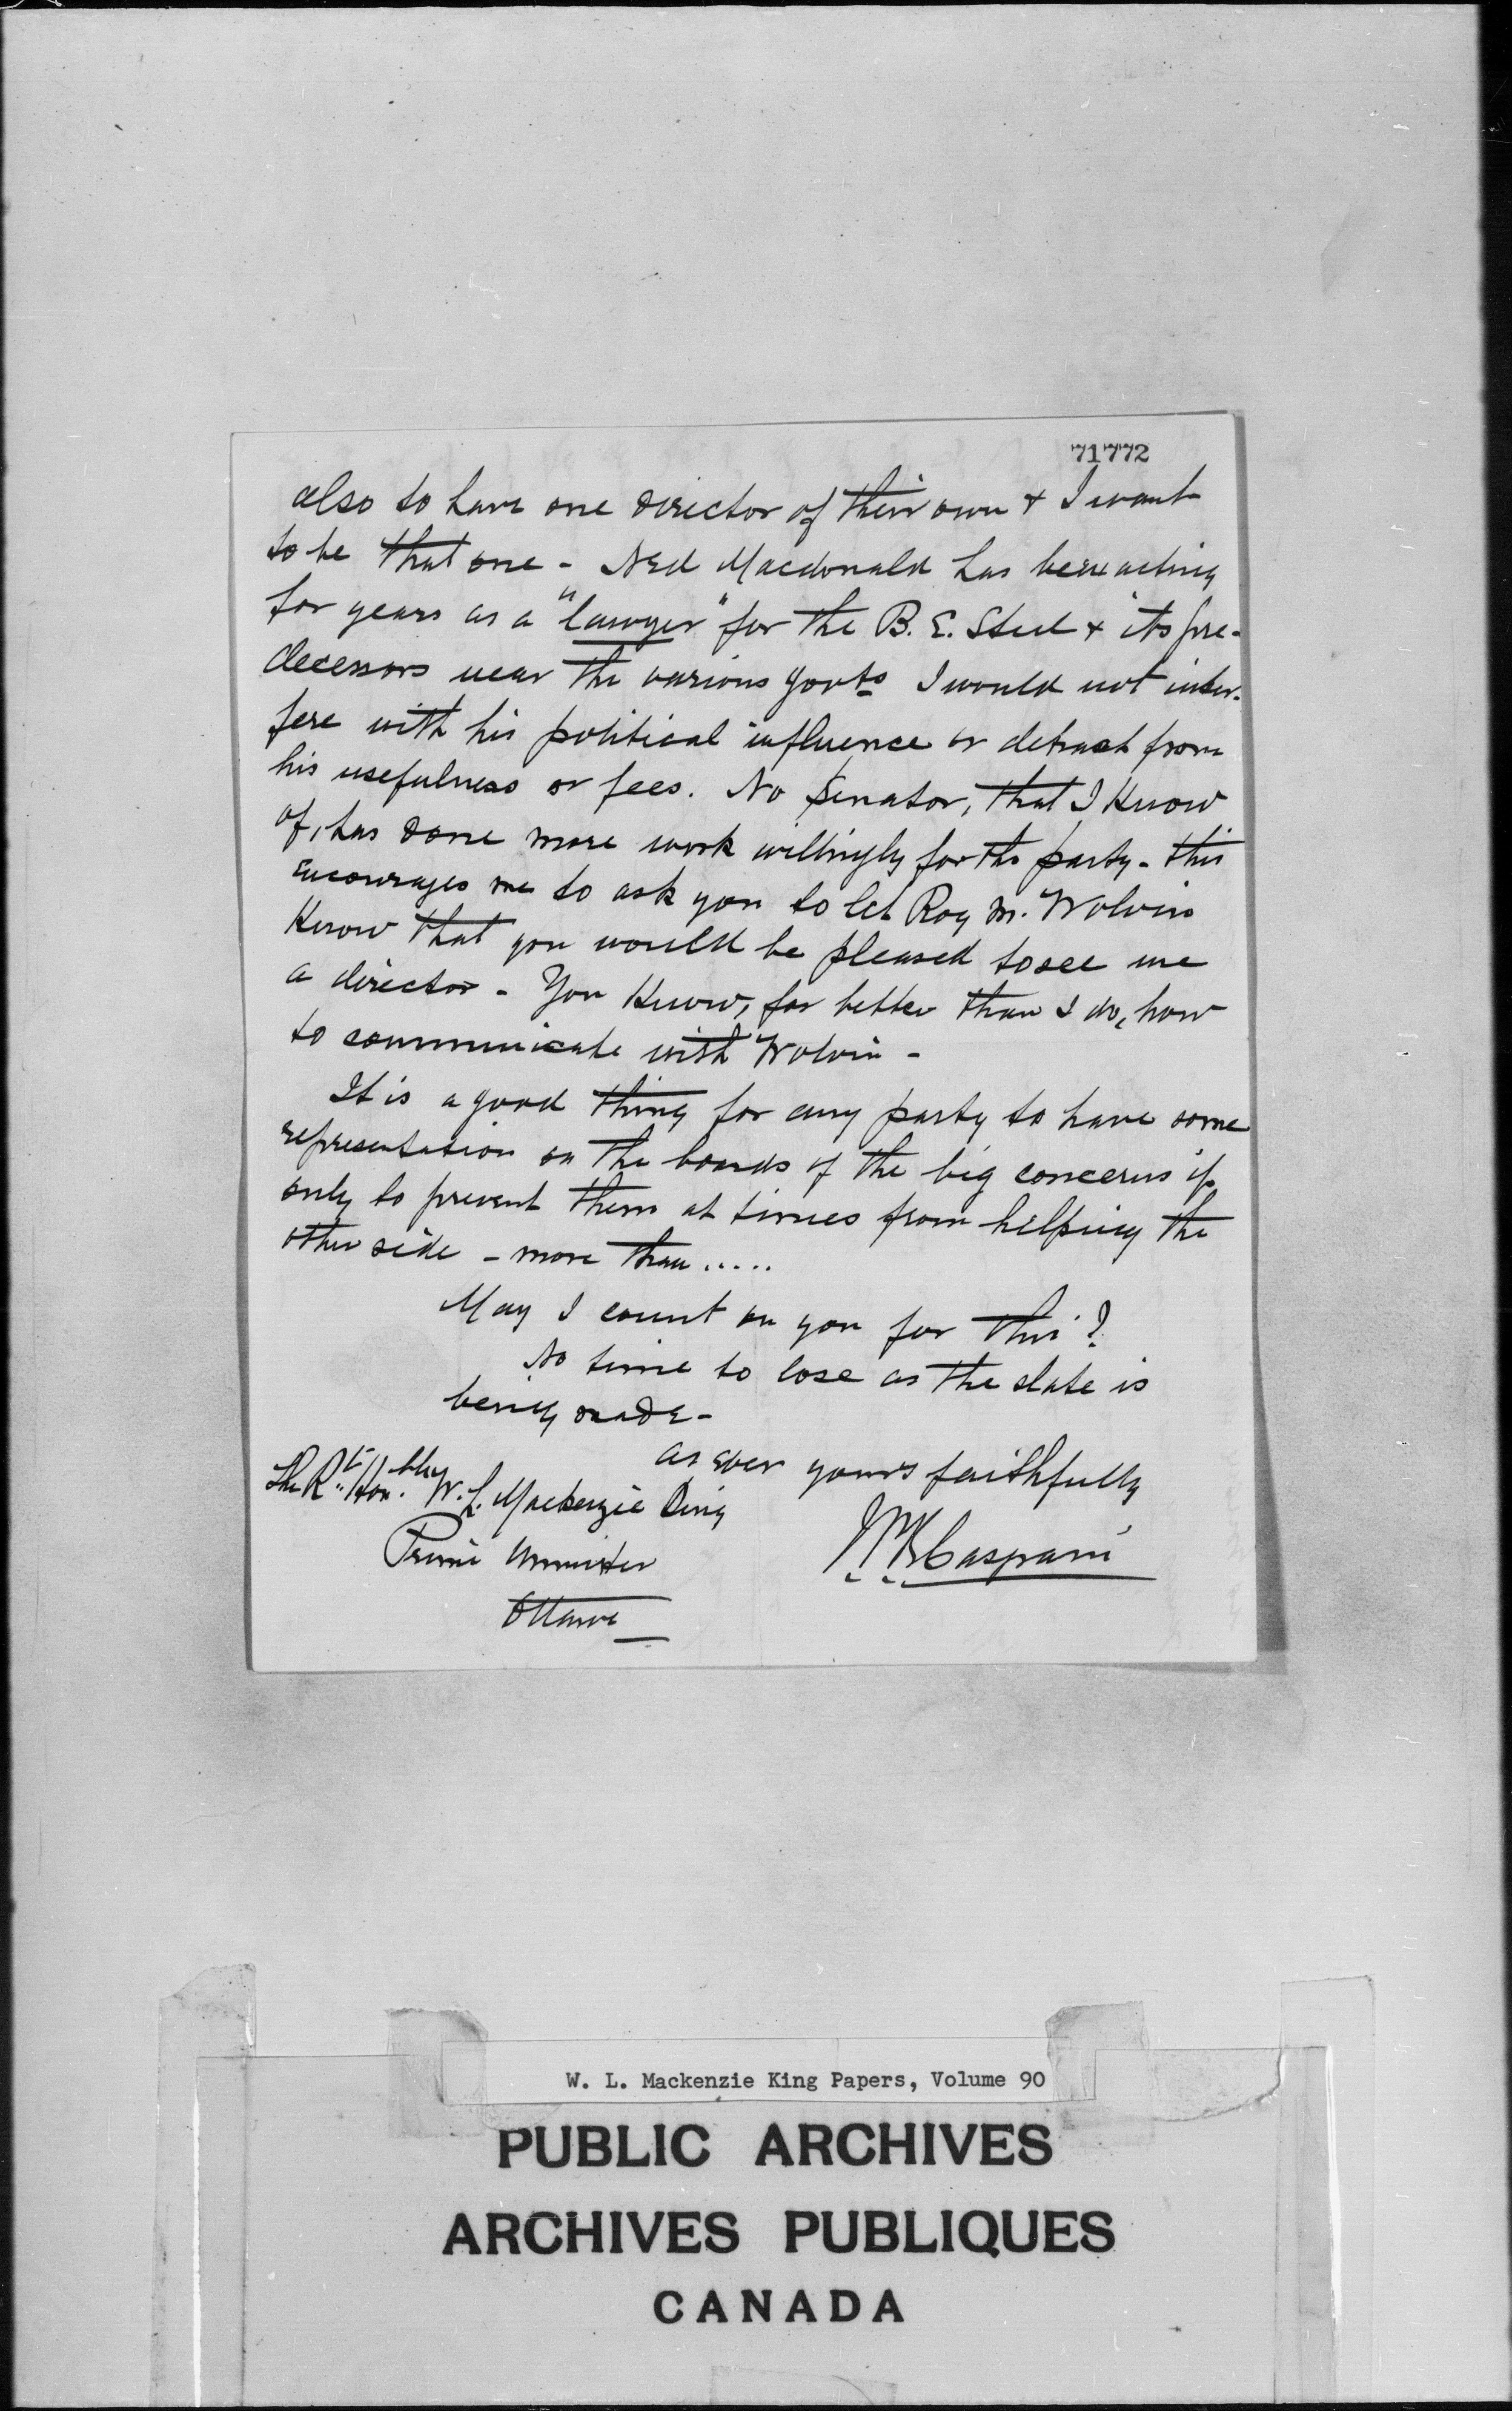 71772
also to have one director of their own & I want
to be that one - Ned Macdonald has been acting
for years as a "lawyer" for the B. E. Steel & its pre-
decessors near the various govts I would not inter-
fere with his political influence or detract from
his usefulness or fees. No Senator, that I know
of, has done more work willingly for the party - this
encourages me to ask you to let Roy M. Wolvin
know that you would be pleased to see me
a director - You know, far better than I do, how
to communicate with Wolvin -
It is a good thing for any party to have some
representation on the boards of the big concerns if
only to prevent them at times from helping the
other side - more than .....
May I count on you for this?
No time to lose as the slate is
being made -
as ever yours faithfully
The Rt. Honble W. L. Mackenzie King
Prime Minister
Ottawa
Casgrain
W. L. Mackenzie King Papers, Volume 90
PUBLIC ARCHIVES
ARCHIVES PUBLIQUES
CANADA